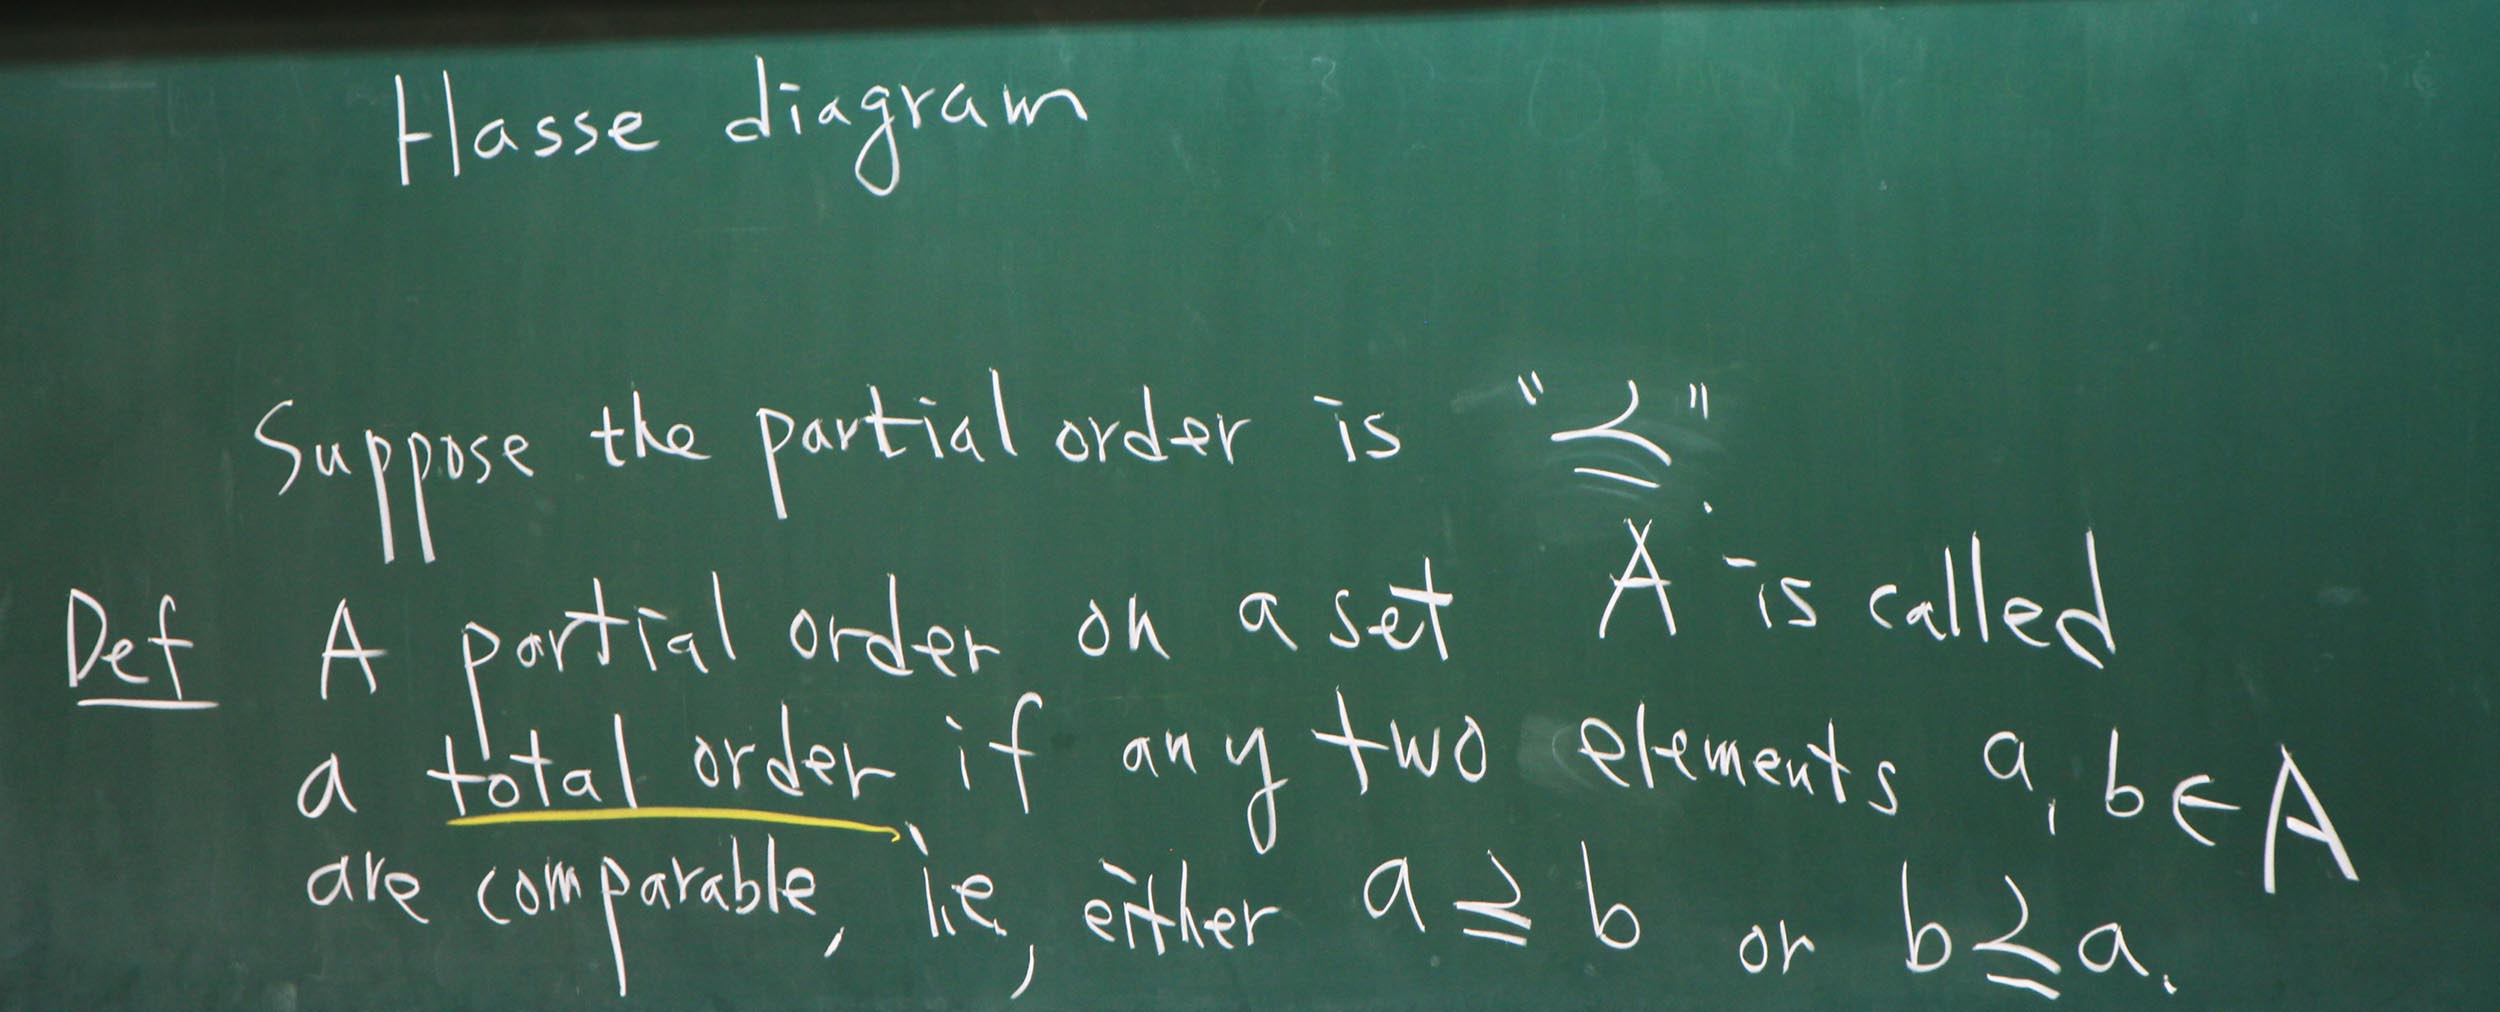 Hasse diagram
Suppose the partial order is "⪯".
Def A partial order on a set A is called
a total order if any two elements a, b ∈ A
are comparable, i.e, either a ⪯ b or b ⪯ a.